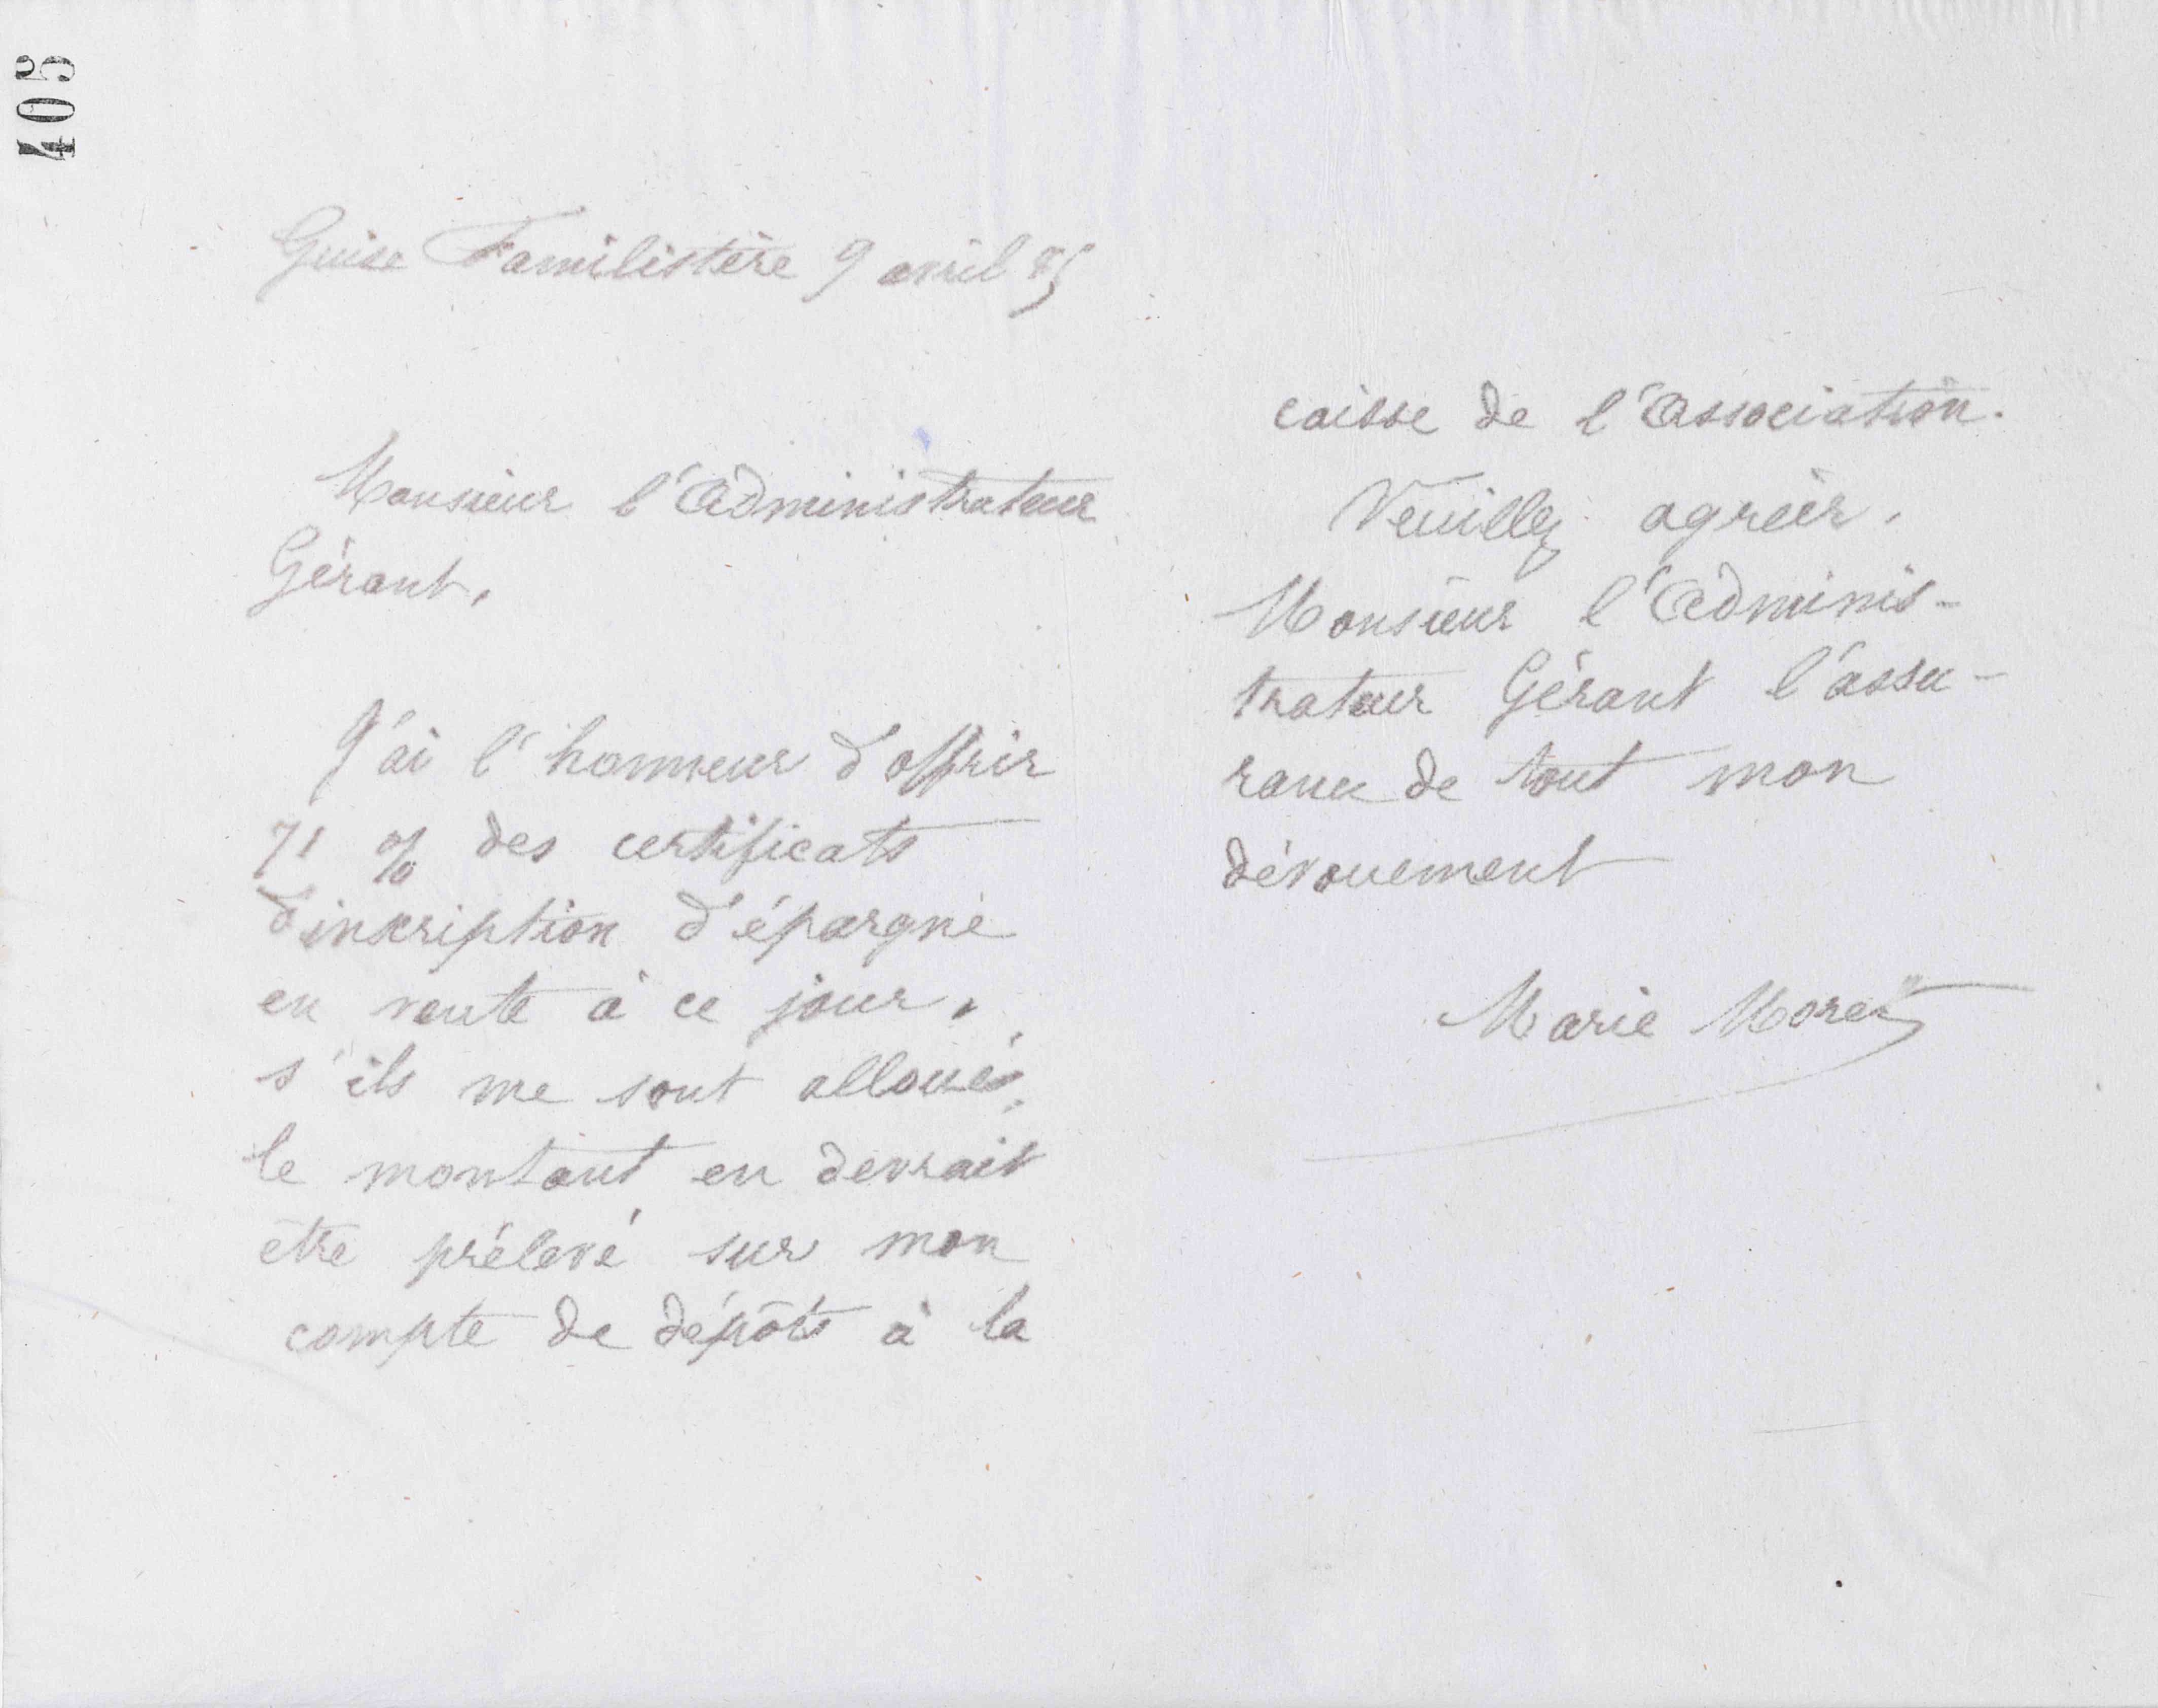 405
Guise Familistère 9 avril 95
Monsieur l'Administrateur
Gérant,
J'ai l'honneur d'offrir
71 % des certificats
d'inscription d'épargne
en vente à ce jour.
s'ils me sont alloués,
le montant en devrait
être prélevé sur mon
compte de dépôts à la
caisse de l'Association.
Veuillez agréer,
Monsieur l'Adminis-
trateur Gérant l'assu-
rance de tout mon
dévouement
Marie Moret